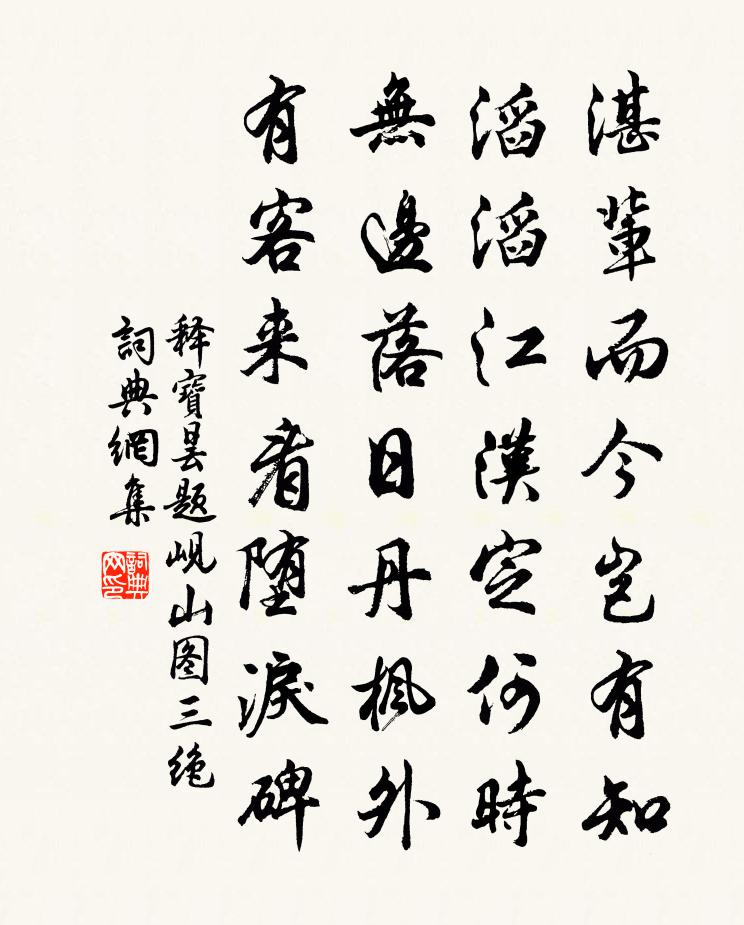 湛輩而今豈有知
滔滔江漢定何時
無邊落日丹楓外
有客来看墮淚碑
释寶曇题岘山图三绝
詞典網集
詞典網印